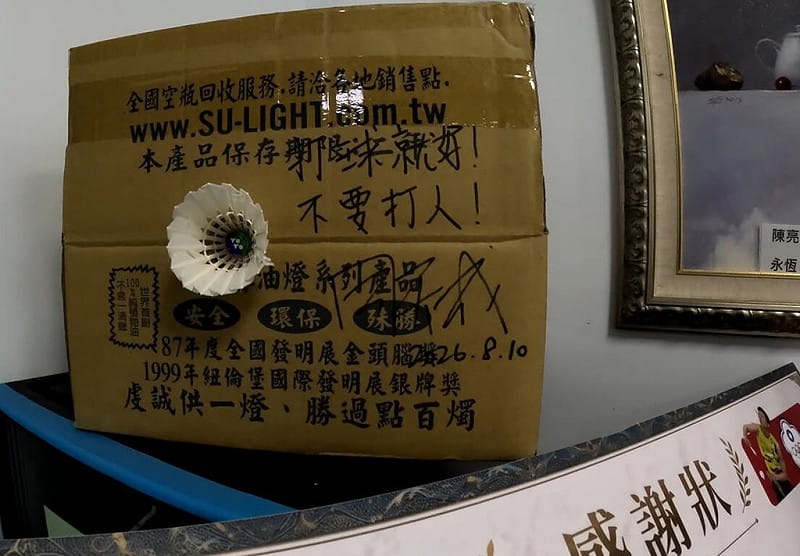 全國空瓶回收服務，請洽各地銷售點。
www.SU-LIGHT.com.tw
本產品保存期限
來就好！
不要打人！
油燈系列產品
世界首創
100%純植物油
不息一滴雞
安全 環保 殊勝
87年度全國發明展金頭腦獎
26.8.10
1999年紐倫堡國際發明展銀牌獎
虔誠供一燈、勝過點百燭
陳亮
永恆
感謝狀